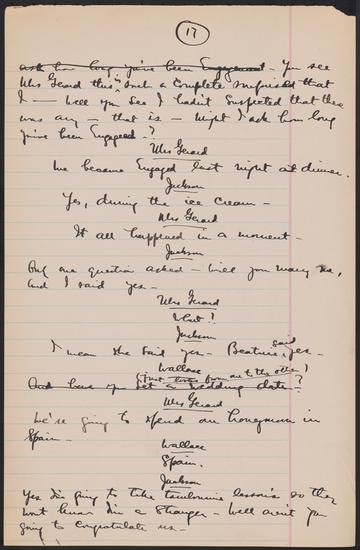 17
ask how long you've been Engaged - You see
Mrs Gerard this is such a complete surprise that
I - well you see I hadn't suspected that there
was any - that is - might I ask how long
you've been Engaged - ?
Mrs Gerard
We became Engaged last night at dinner.
Jackson
Yes, during the ice cream -
Mrs Gerard
It all happened in a moment -
Jackson
Only one question asked - will you marry me,
and I said yes -
Mrs Gerard
What!
Jackson
I mean she said yes - Beatrice said yes -
Wallace
(Just looks from one to the other)
And have you set a wedding date - ?
Mrs Gerard
We're going to spend our honeymoon in
Spain -
Wallace
Spain.
Jackson
Yes I'm going to take tambourine lessons so they
wont know I'm a stranger - Well aren't you
going to congratulate us -